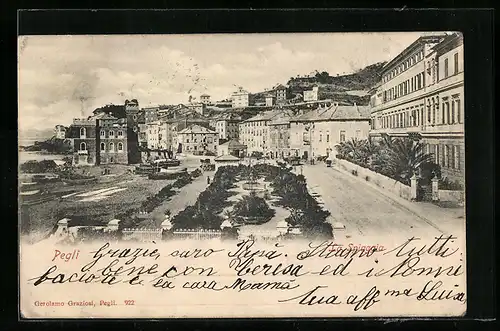 Pegli
La Spiaggia
Grazie, caro Pepa. Stiamo tutti
bene con Teresa ed i Nonni
baciote e la cara Mamma
tua aff ma Luisa
Gerolamo Graziosi, Pegli. 922